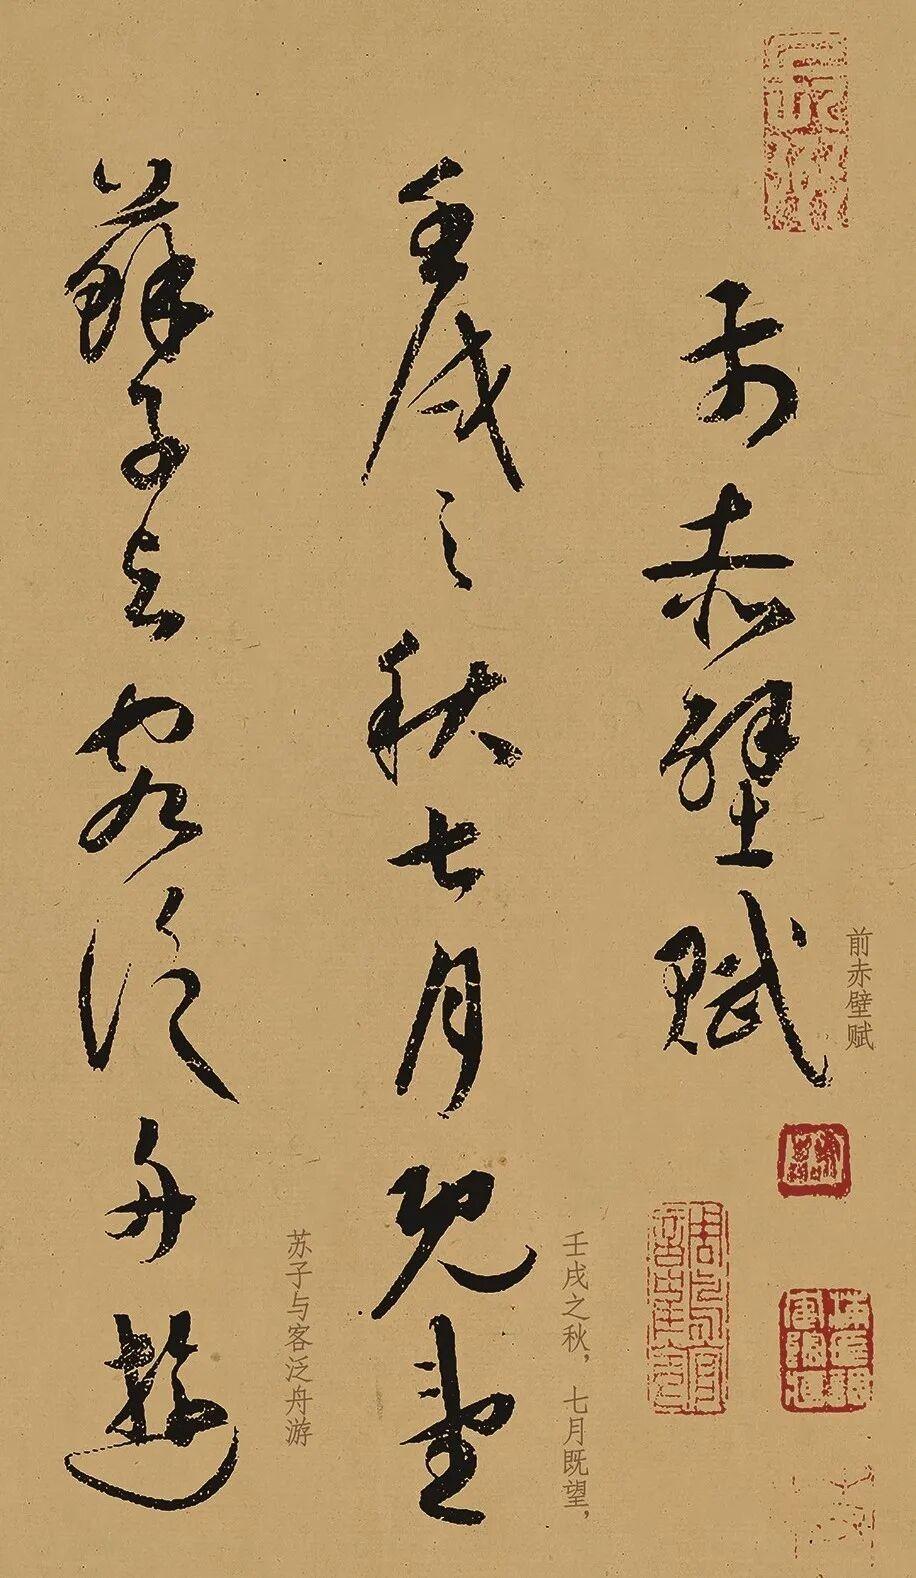 前赤壁賦
前赤壁赋
壬戌之秋七月既望
壬戌之秋，七月既望，
蘇子与客泛舟遊
苏子与客泛舟游